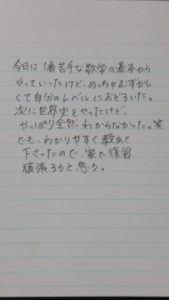 今日は、1番苦手な数学の基本から
やっていったけど、めっちゃむずかし
くて自分のレベルにおどろいた。
次に世界史をやったけど、
やっぱり全然わからなかった。笑
でも、わかりやすく教えて
下さったので、家で復習
頑張ろうと思う。